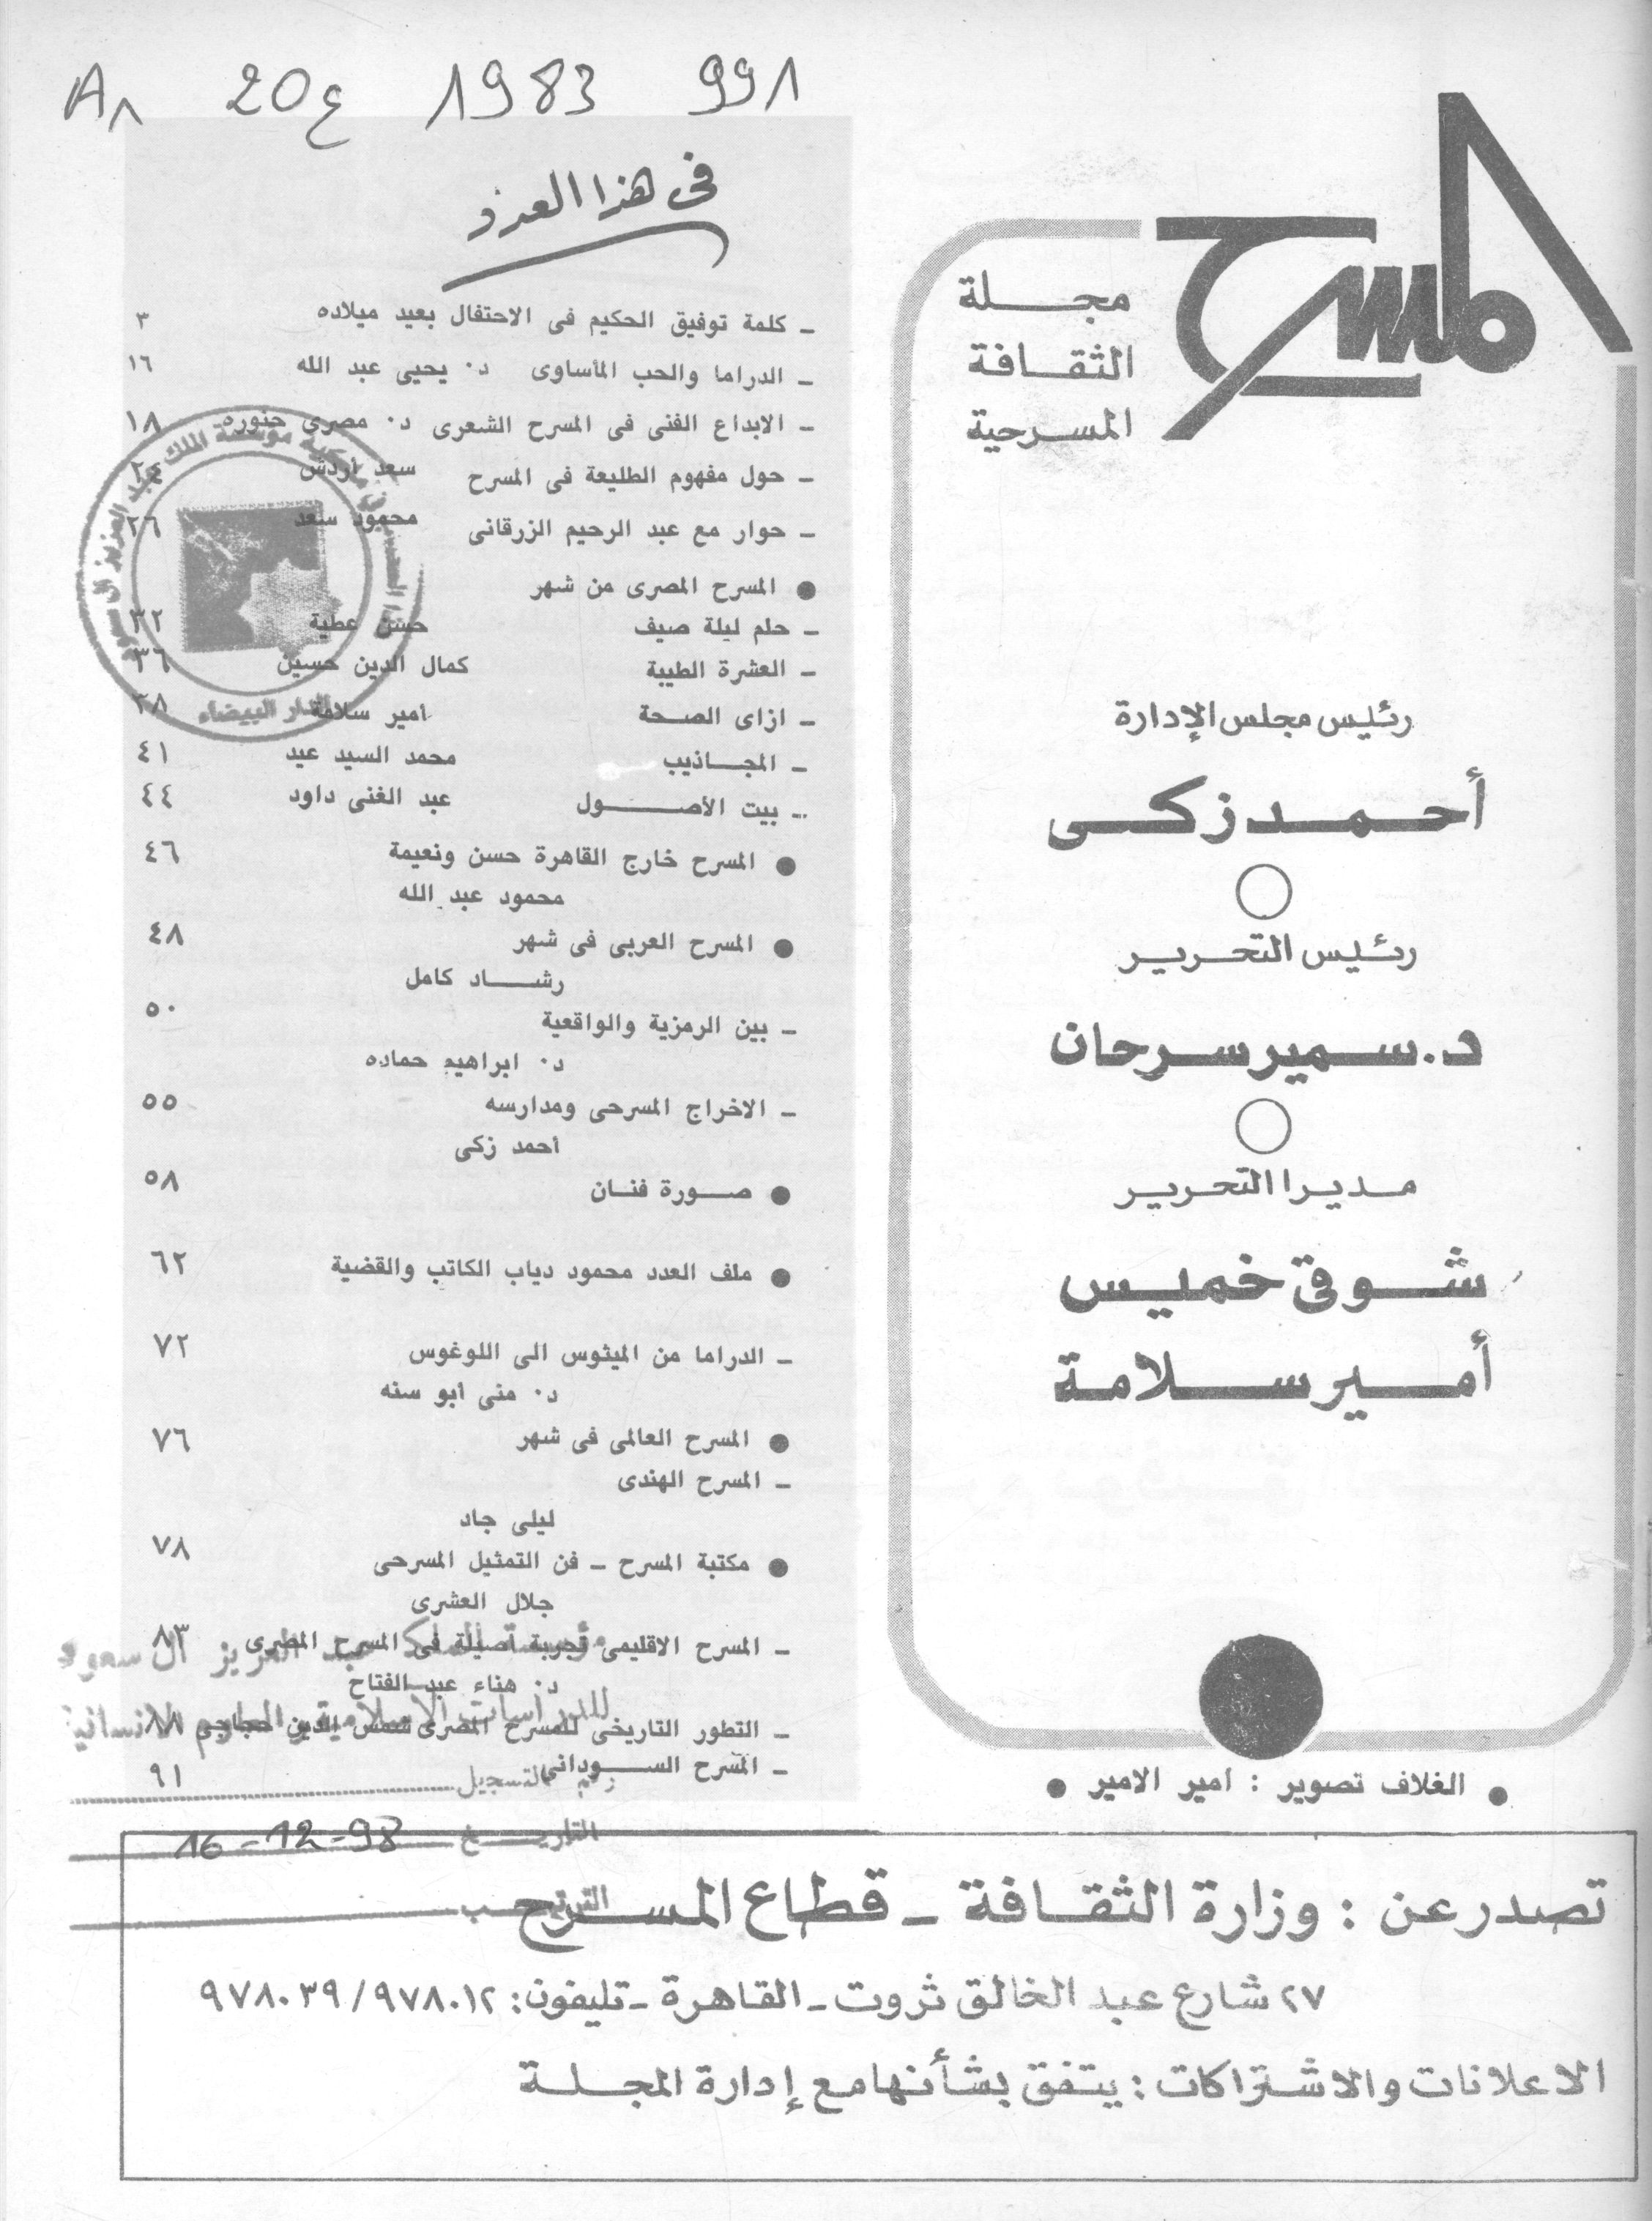 المسرح
مجلة
الثقافة
المسرحية
رئيس مجلس الإدارة
أحمد زكى
رئيس التحرير
د. سمير سرحان
مديرا التحرير
شوقى خميس
أمير سلامة
● الغلاف تصوير : أمير الامير ●
991 1983 20ع
فى هذا العدد
ـ كلمة توفيق الحكيم فى الاحتفال بعيد ميلاده ٣
ـ الدراما والحب المأساوى د٠ يحيى عبد الله ١٦
ـ الابداع الفنى فى المسرح الشعرى د٠ مصرى حنوره ١٨
ـ حول مفهوم الطليعة فى المسرح سعد أردش ٢٤
ـ حوار مع عبد الرحيم الزرقانى محمود سعد ٢٦
● المسرح المصرى من شهر
ـ حلم ليلة صيف حسن عطية ٣٢
ـ العشرة الطيبة كمال الدين حسين ٣٦
ـ ازاى الصحة أمير سلامة ٣٨
ـ المجاذيب محمد السيد عيد ٤١
ـ بيت الأصول عبد الغنى داود ٤٤
● المسرح خارج القاهرة حسن ونعيمة ٤٦
محمود عبد الله
● المسرح العربى فى شهر ٤٨
رشاد كامل
ـ بين الرمزية والواقعية ٥٠
د٠ ابراهيم حماده
ـ الاخراج المسرحى ومدارسه ٥٥
أحمد زكى
● صورة فنان ٥٨
● ملف العدد محمود دياب الكاتب والقضية ٦٢
ـ الدراما من الميثوس الى اللوغوس ٧٢
د٠ منى أبو سنه
● المسرح العالمى فى شهر ٧٦
ـ المسرح الهندى
ليلى جاد
● مكتبة المسرح ـ فن التمثيل المسرحى ٧٨
جلال العشرى
ـ المسرح الاقليمى تجربة أصيلة فى المسرح المصرى ٨٣
د٠ هناء عبد الفتاح
ـ التطور التاريخى للمسرح المصرى شمس الدين حجاجى ٨٨
ـ المسرح السودانى ٩١
مؤسسة الملك عبد العزيز آل سعود
للدراسات الاسلامية والعلوم الانسانية
الدار البيضاء
مؤسسة الملك عبد العزيز آل سعود
للدراسات الاسلامية والعلوم الانسانية
رقم التسجيل
التاريخ 16-12-98
الترتيب
تصدر عن : وزارة الثقافة ـ قطاع المسرح
٢٧ شارع عبد الخالق ثروت ـ القاهرة ـ تليفون: ٩٧٨٠١٢/ ٩٧٨٠٣٩
الاعلانات والاشتراكات : يتفق بشأنها مع إدارة المجلة